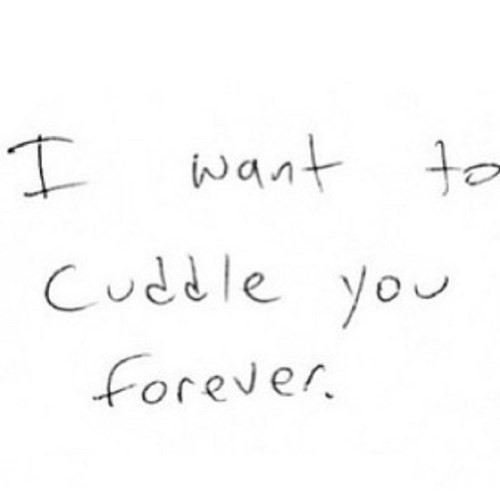 I want to
cuddle you
forever.